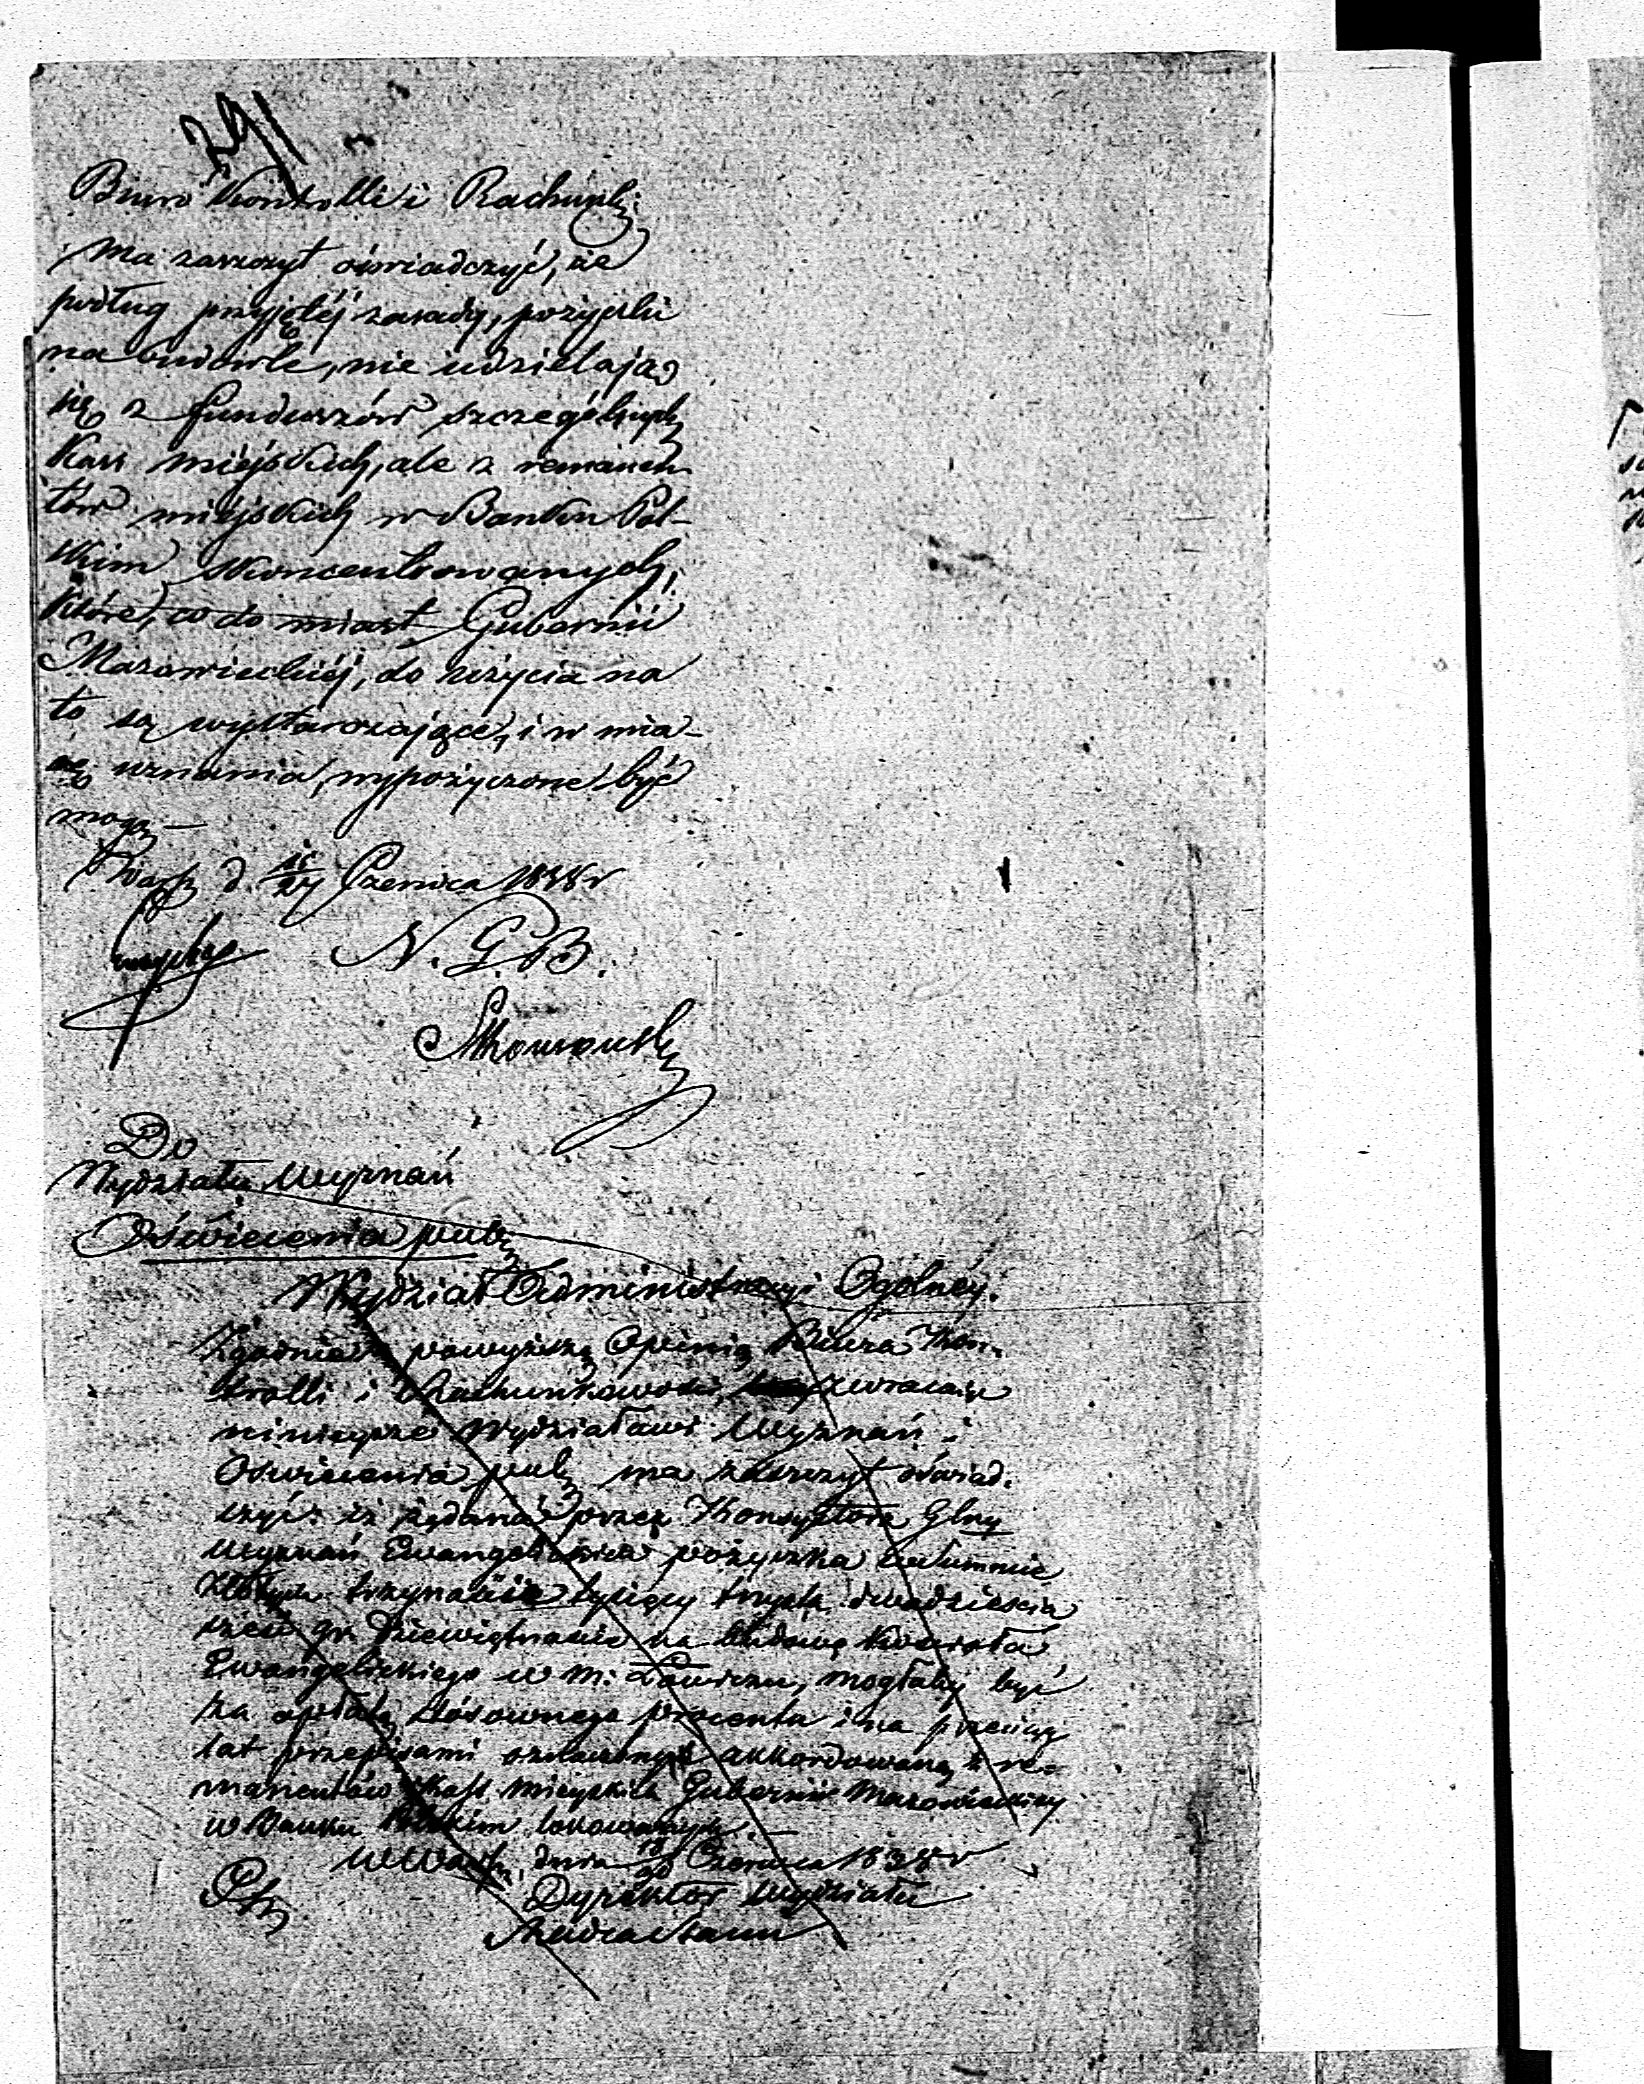 291
Biuro Kontrolli i Rachunk:
ma zaszczyt oświadczyć, że
podług przyjętéj zasady, pożyczki
na budowle, nie udzielają
się z funduszów szczególnych
Kass miéjskich, ale z remanen-
tów miéjskich w Banku Pol-
skim skoncentrowanych,
które, co do miast Gubernii
Mazowieckiéj, do użycia na
to są wystarczające, i w mia-
rę uznania, wypożyczone być
mogą —
Warsz d. 15/27 Czerwca 1838 r
N. G. B.
Do
Wydziału Wyznań
Oświecenia publ
Wydział Administracyi Ogolnéy.
Zgodnie z powyższą Opinią Biura Kon-
trolli i Rachunkowości, zwracając
ninieysze Wydziałowi Wyznań i
Oswiecenia publ ma zaszczyt oświad-
czyć: iż żądana przez Konsystorz Glny
Wyznań Ewangelickich pożyczka w summie
Złotych trzynaście tysięcy trzysta dwadzieścia
sześć gr. dziewiętnaście na budowę Kościoła
Ewangelickiego w m: Łowiczu, mogłaby być
za opłatą stósownego procentu i na przeciąg
lat przepisami oznaczony akkordowaną z re-
manentów Kass Mieyskich Gubernii Mazowieckiey
w Banku Polskim lokowanych. —
w Warsz. dnia 18/30 Czerwca 1838 r
Dyrektor Wydziału